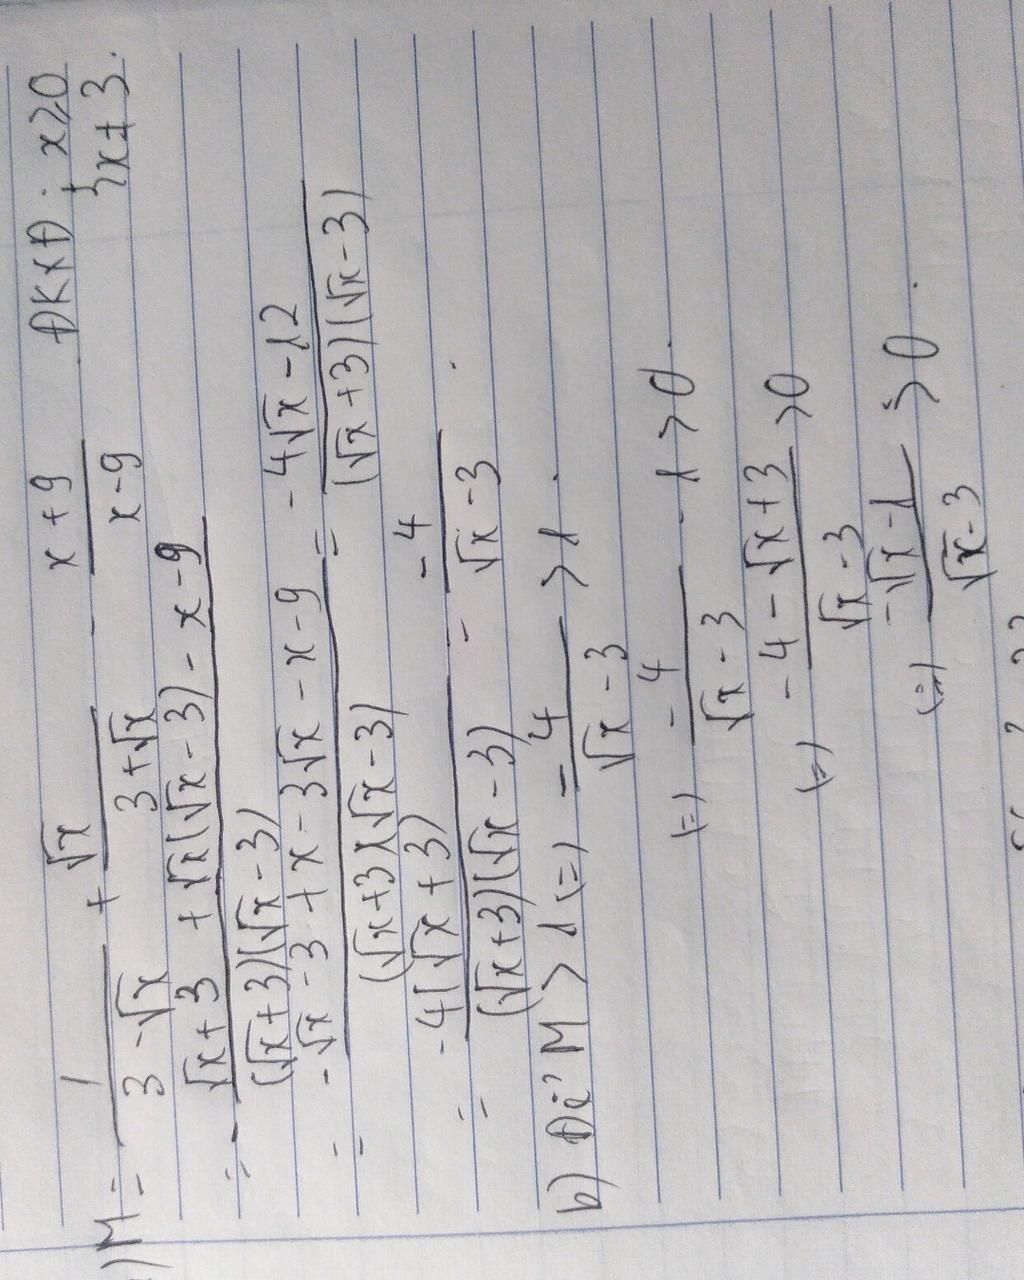 ) M = 1/(3 - √x) + √x/(3 + √x) - (x + 9)/(x - 9) ĐKXĐ: { x ≥ 0 x ≠ 3.
= - (√x + 3 + √x(√x - 3) - x - 9)/((√x + 3)(√x - 3))
= (-√x - 3 + x - 3√x - x - 9)/((√x + 3)(√x - 3)) = (-4√x - 12)/((√x + 3)(√x - 3))
= (-4(√x + 3))/((√x + 3)(√x - 3)) = -4/(√x - 3).
b) Để M > 1 (=) -4/(√x - 3) > 1.
(=) -4/(√x - 3) - 1 > 0.
(=) (-4 - √x + 3)/(√x - 3) > 0
(=) (-√x - 1)/(√x - 3) > 0.